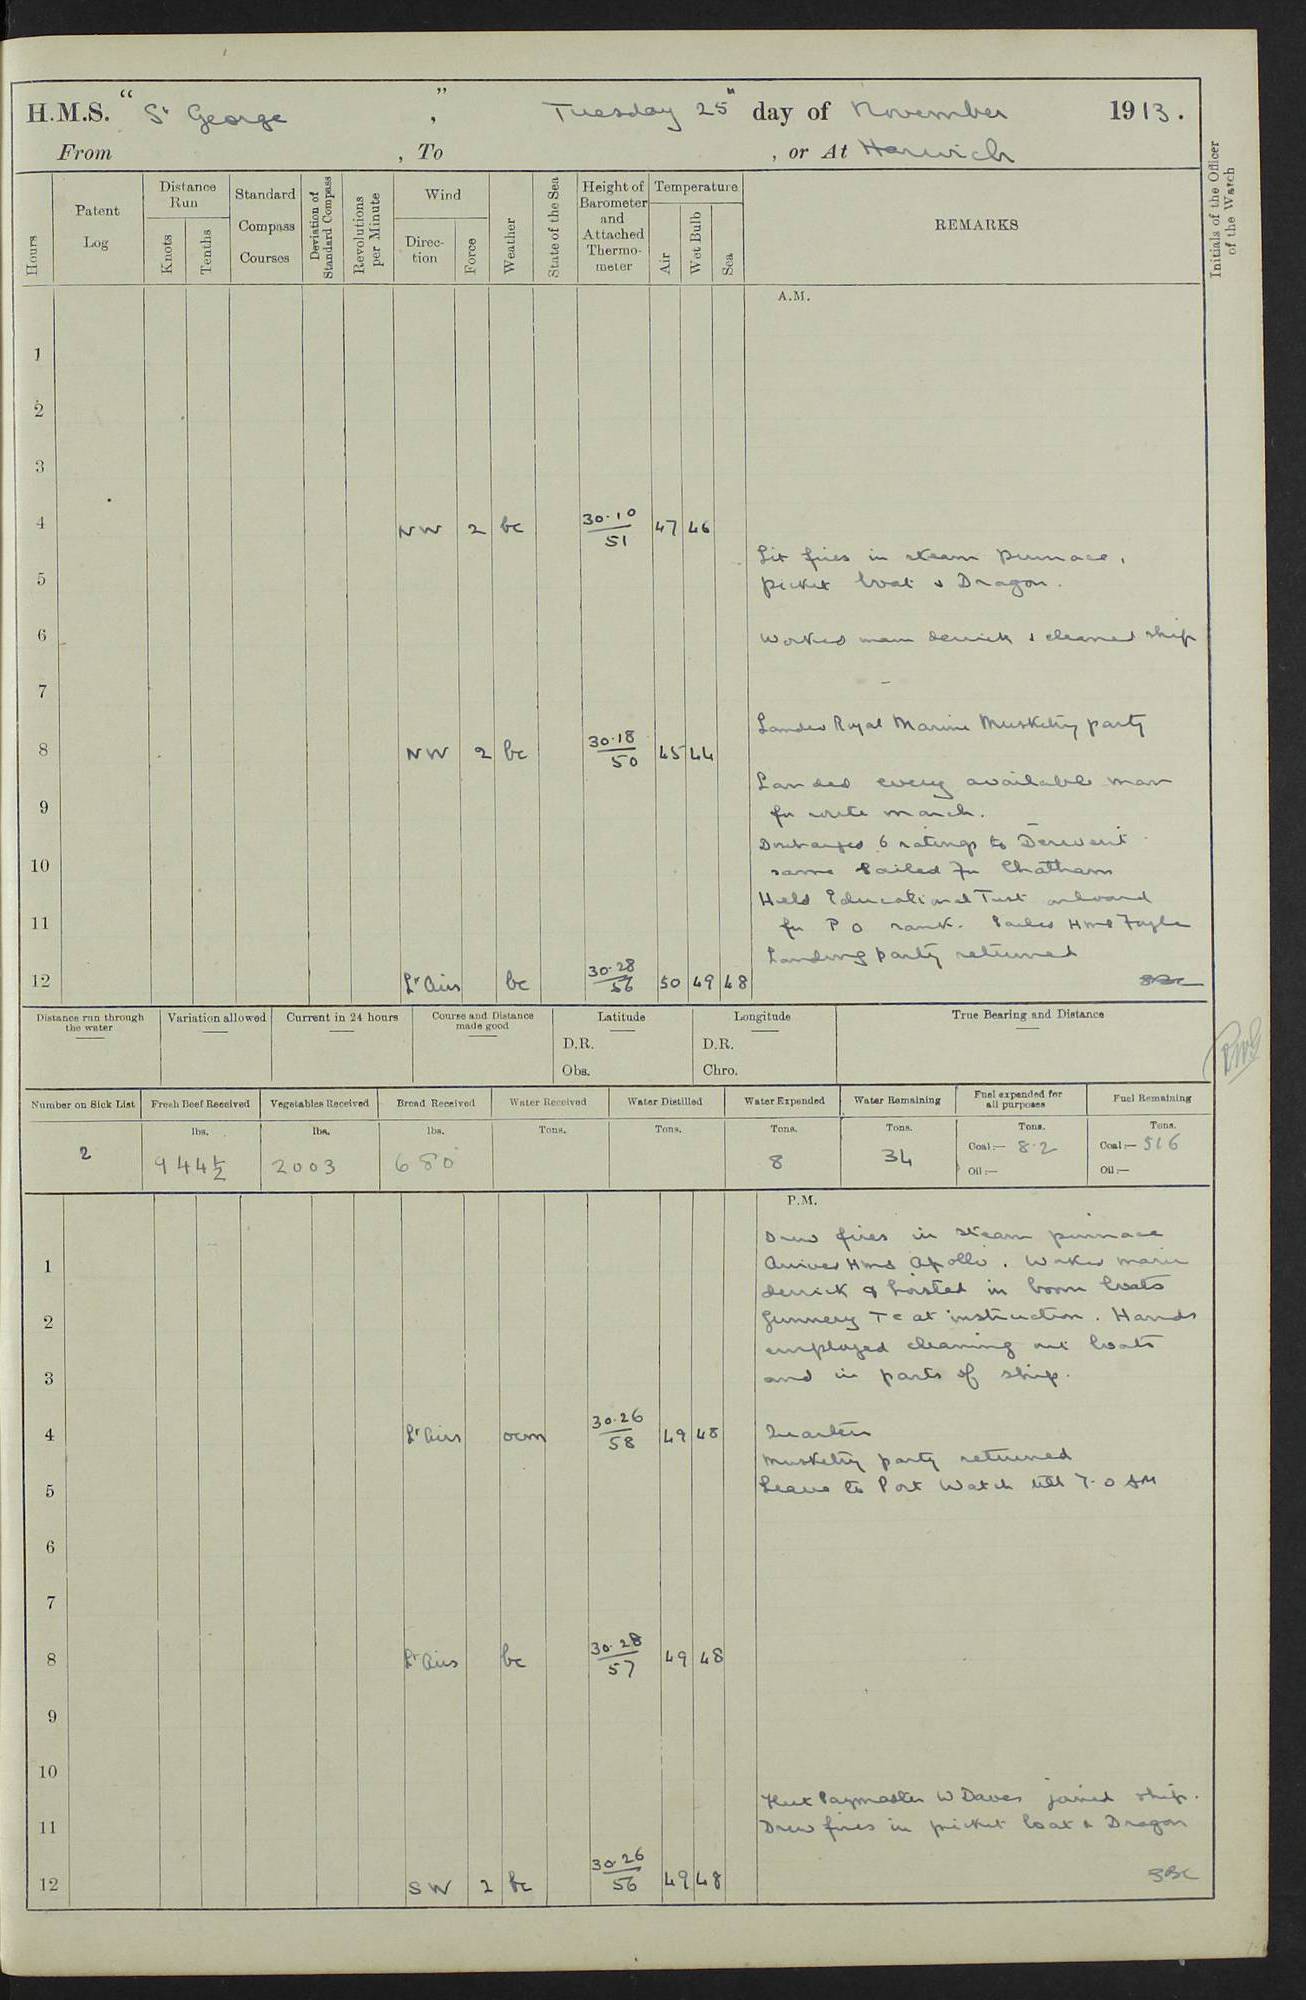 H.M.S. " St George " , Tuesday 25th day of November 1913.
From , To , or At Harwich
Hours
Patent Log
Distance Run
Knots
Tenths
Standard Compass Courses
Deviation of Standard Compass
Revolutions per Minute
Wind
Direction
Force
Weather
State of the Sea
Height of Barometer and Attached Thermometer
Temperature
Air
Wet Bulb
Sea
REMARKS
Initials of the Officer of the Watch
A.M.
1
2
3
4 NW 2 bc 30.10/51 47 46
Lit fires in steam pinnace,
5 picket boat & Dragon.
6 Worked main derrick & cleaned ship
7
Landed Royal Marine Musketry party
8 NW 2 bc 30.18/50 45 44
Landed every available man
9 for route march.
Discharged 6 ratings to Derwent
10 same sailed for Chatham
Held Educational Test onboard
11 for P O rank. Sailed HMS Foyle
Landing party returned
12 Lt Airs bc 30.28/56 50 49 48 SBC
Distance run through the water
Variation allowed
Current in 24 hours
Course and Distance made good
Latitude
D.R.
Obs.
Longitude
D.R.
Chro.
True Bearing and Distance
Number on Sick List
Fresh Beef Received
Vegetables Received
Bread Received
Water Received
Water Distilled
Water Expended
Water Remaining
Fuel expended for all purposes
Fuel Remaining
lbs. lbs. lbs. Tons. Tons. Tons. Tons. Tons. Tons.
2 944½ 2003 680 8 34 Coal:— 8.2 Coal:— 516
Oil:— Oil:—
P.M.
Drew fires in steam pinnace
1 Arrived HMS Apollo. Worked main
derrick & hoisted in boom boats
2 Gunnery TC at instruction. Hands
employed cleaning out boats
3 and in parts of ship.
4 Lt Airs ocm 30.26/58 49 48 Quarters
Musketry party returned
5 Leave to Port Watch till 7.0 AM
6
7
8 Lt Airs bc 30.28/57 49 48
9
10
Fleet Paymaster W Davies joined ship.
11 Drew fires in picket boat & Dragon
12 SW 2 bc 30.26/56 49 48 SBC